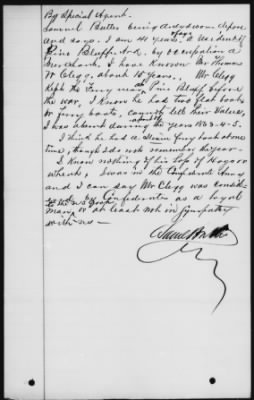 By Special Agent.
Samuel Butler being duly sworn depose
and says. I am 41 years of age. Resident of
Pine Bluff Ark. by occupation a
Merchant. I have known Mr Thomas
W Clegg, about 15 years. Mr Clegg
kept the Ferry near Pine Bluff before
the war, I know he had two flat boats
or Ferry boats, cannot tell their values,
I was absent during the years 1863-4-5.
I think he had a Steam Ferry boat one
time, though I do not remember the year.
I know nothing of his loss of Wagon
wheat, I was in the Confederate Army
and I can say Mr Clegg was consid-
ered by Confederates as a loyal
man, or at least not in sympathy
with us —
Saml Butler